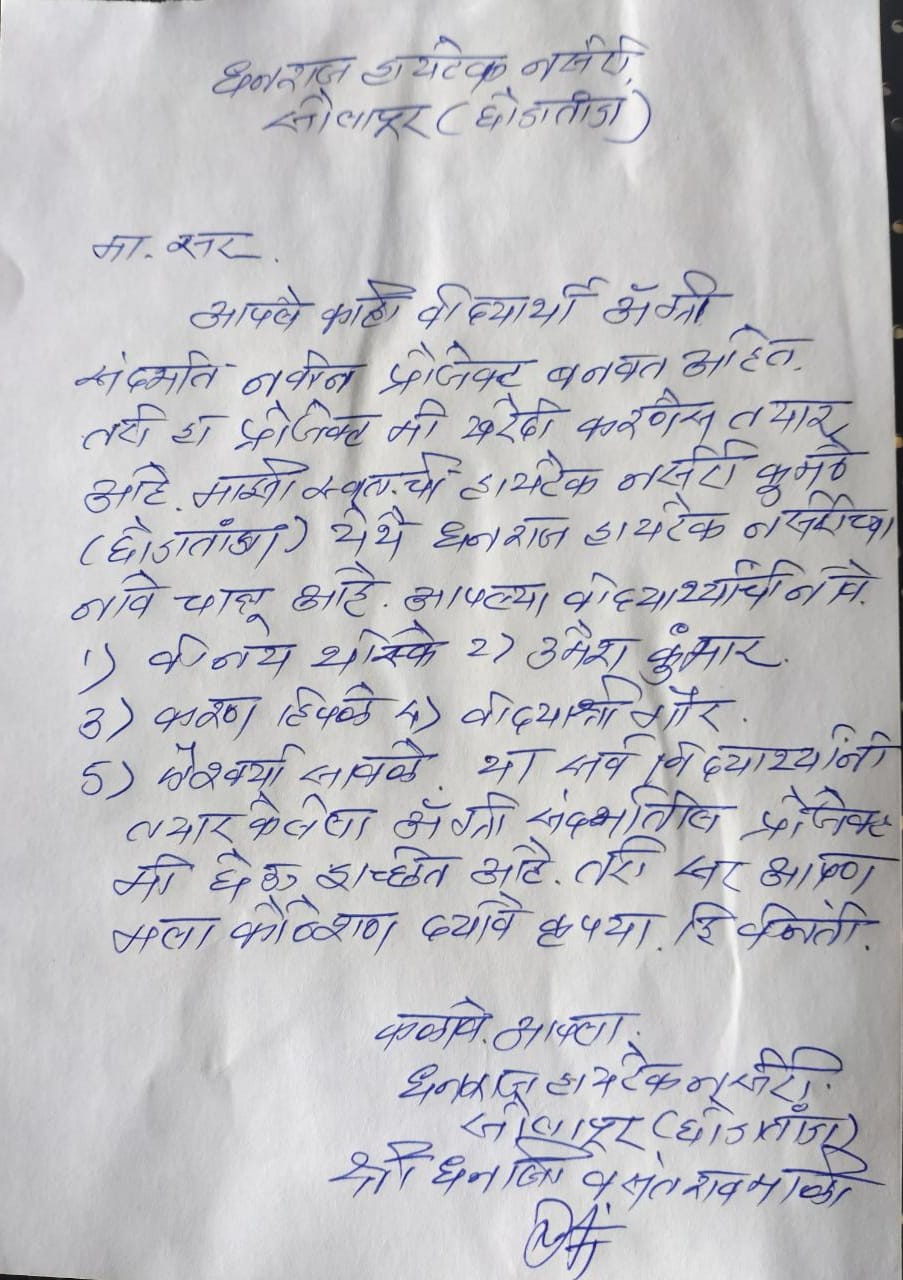 धनराज हायटेक नर्सरी,
सोलापूर (घोडातांडा)
मा. सर.
आपले काही विद्यार्थी अ‍ॅग्री
संदर्भात नवीन प्रोजेक्ट बनवत आहेत.
तरी हा प्रोजेक्ट मी खरेदी करणेस तयार
आहे. माझी स्वतःची हायटेक नर्सरी कुमठे
(घोडातांडा) येथे धनराज हायटेक नर्सरीच्या
नावे चालू आहे. आपल्या विद्यार्थ्यांची नावे.
1) विनय थोरके 2) उमेश कुंभार.
3) करण हिपळे 4) विद्याश्री गौर.
5) ऐश्वर्या सावळे. या सर्व विद्यार्थ्यांनी
तयार केलेला अ‍ॅग्री संदर्भातील प्रोजेक्ट
मी घेऊ इच्छित आहे. तरी सर आपण
मला कोटेशन द्यावे कृपया. हि विनंती.
कळावे. आपला.
धनराज हायटेक नर्सरी.
सोलापूर (घोडातांडा)
श्री वसंतराव माळी